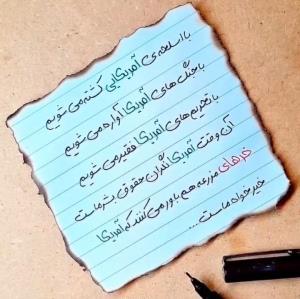 با اسلحه‌ی آمریکایی کشته می شویم
با جنگ های آمریکا آواره می شویم
با تحریم های آمریکا فقیر می شویم
آن وقت آمریکا نگران حقوق بشر ماست
خرهای مزرعه هم باور می کنند که آمریکا
خیرخواه ماست ...